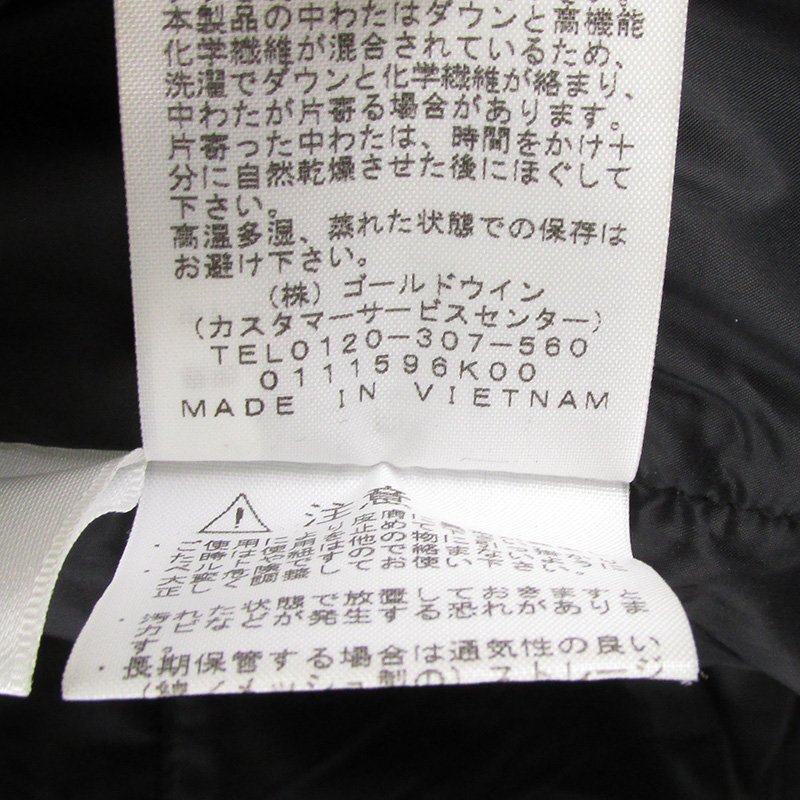 本製品の中わたはダウンと高機能
化学繊維が混合されているため、
洗濯でダウンと化学繊維が絡まり、
中わたが片寄る場合があります。
片寄った中わたは、時間をかけ十
分に自然乾燥させた後にほぐして
下さい。
高温多湿、蒸れた状態での保存は
お避け下さい。
(株)ゴールドウイン
(カスタマーサービスセンター)
TEL0120-307-560
0111596K00
MADE IN VIETNAM
注意
汚れた状態で放置しておきますと
カビなどが発生する恐れがありま
す。
・長期保管する場合は通気性の良い
(綿/メッシュ製の)ストレージ